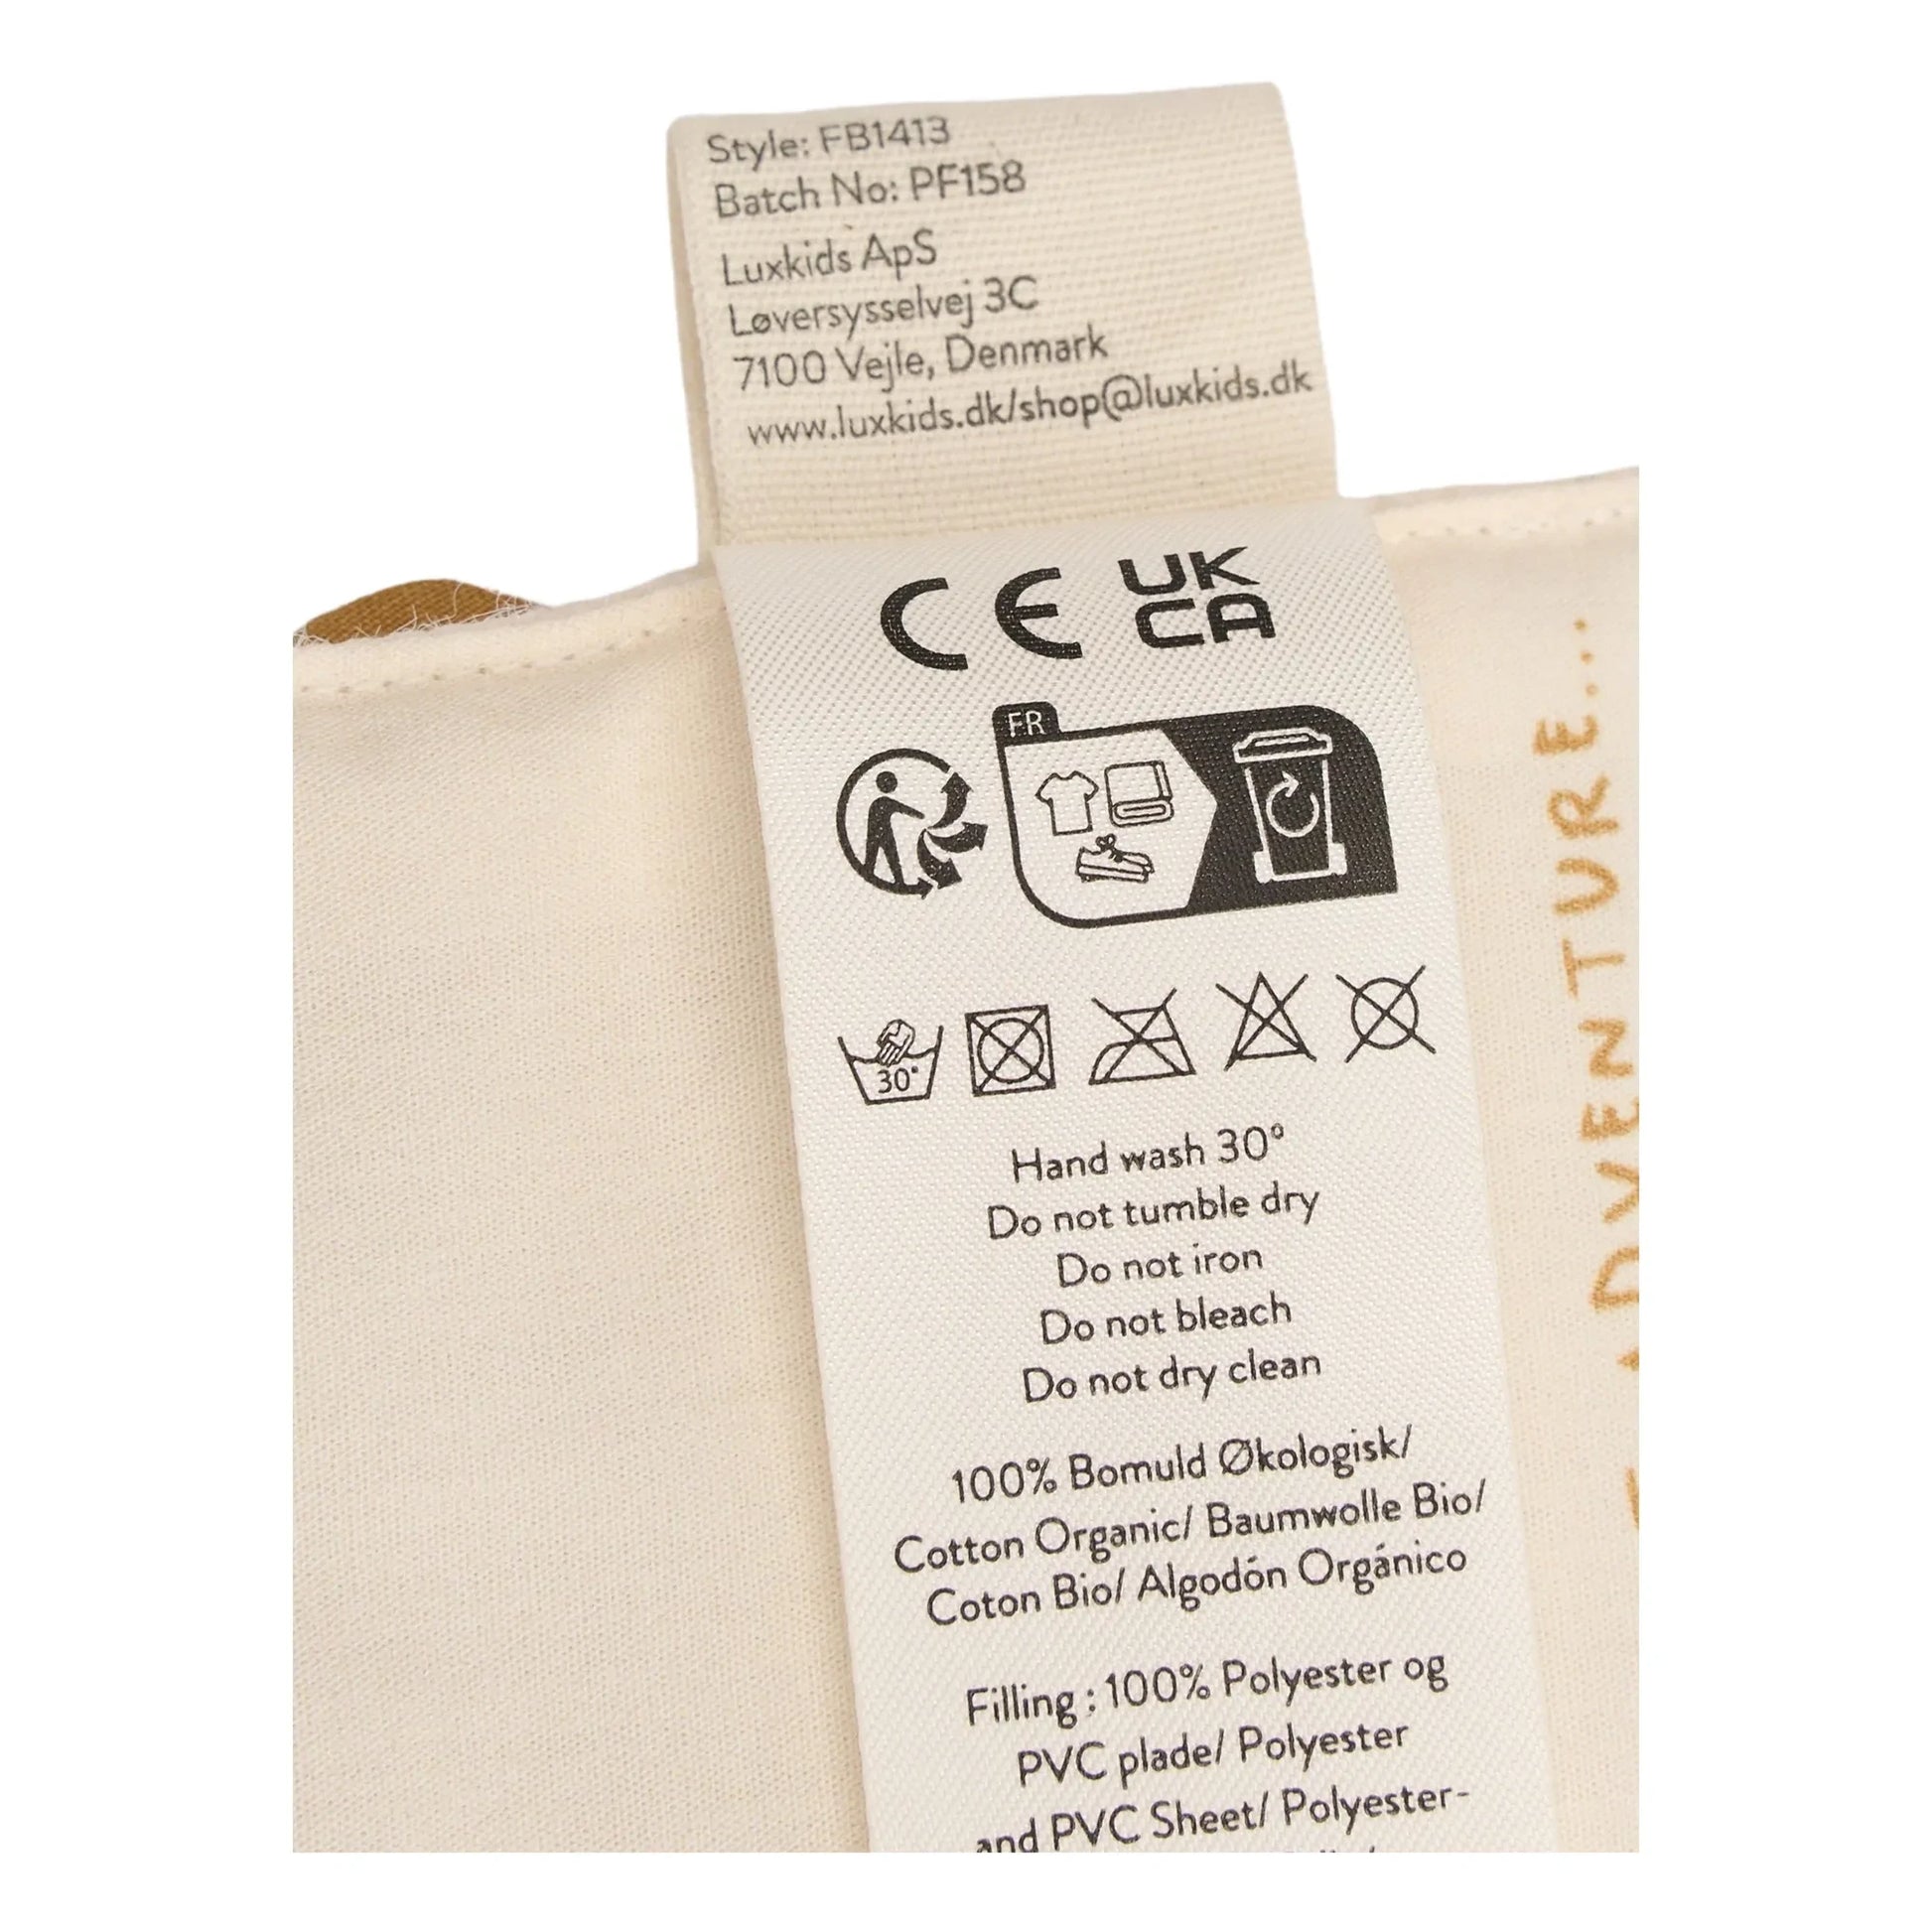 Style: FB1413
Batch No: PF158
Luxkids ApS
Løversysselvej 3C
7100 Vejle, Denmark
www.luxkids.dk/shop@luxkids.dk
CE UK
CA
FR
30°
Hand wash 30°
Do not tumble dry
Do not iron
Do not bleach
Do not dry clean
100% Bomuld Økologisk/
Cotton Organic/ Baumwolle Bio/
Coton Bio/ Algodón Orgánico
Filling : 100% Polyester og
PVC plade/ Polyester
and PVC Sheet/ Polyester-
ADVENTURE...